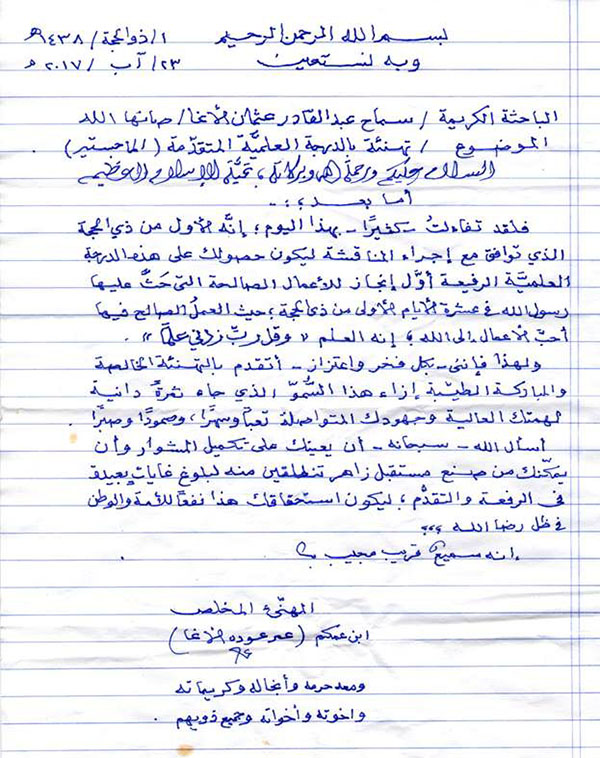 بسم الله الرحمن الرحيم
وبه نستعين
١/ذو الحجة/١٤٣٨هـ
٢٣/آب/٢٠١٧م
الباحثة الكريمة / سماح عبدالقادر عثمان الأغا / صانها الله
الموضوع / تهنئة بالدرجة العلميَّة المتقدّمة (الماجستير)
السلام عليكم ورحمة الله وبركاته، تحيَّة الإسلام العظيم
أما بعد ؛؛
فلقد تفاءلتُ - كثيرًا - بهذا اليوم؛ إنَّه الأول من ذي الحجة
الذي توافق مع إجراء المناقشة ليكون حصولك على هذه الدرجة
العلميَّة الرفيعة أوَّل إنجاز للأعمال الصالحة التي حَثَّ عليها
رسول الله في عشرة الأيام الأولى من ذي الحجة؛ حيث العملُ الصالح فيها
أحبّ الأعمال إلى الله؛ إنه العلم "وقل ربّ زدني علمًا".
ولهذا فإنني - بكل فخر واعتزاز - أتقدم بالتهنئة الخالصة
والمباركة الطيّبة إزاء هذا السُّموّ الذي جاء ثمرةً دانية
لهمتك العالية وجهودك المتواصلة تعبًا وسهرًا، وصمودًا وصبرًا.
أسأل الله - سبحانه - أن يعينك على تكميل المشوار وأن
يمكّنك من صنع مستقبل زاهر تنطلقين منه لبلوغ غايات بعيدة
في الرفعة والتقدُّم؛ ليكون استحقاقك هذا نفعًا للأمة والوطن
في ظل رضا الله ،،،
إنه سميع قريب مجيب
المهنّئ المخلص
ابن عمكم (عمر عوده الأغا)
ومعه حرمه وأنجاله وكريماته
واخوته وأخواته وجميع ذويهم .